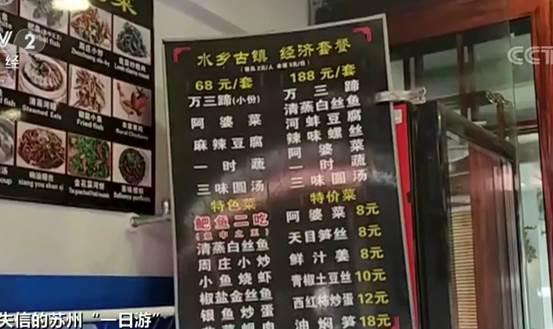 V 2
经
CCT
菜
Steamed Eels
Fried fish
xiang you shan si
水乡古镇 经济套餐
68 元/套
万三蹄(小份)
阿婆菜
麻辣豆腐
一时蔬
三味圆汤
特色菜
鲃鱼二吃
清蒸白丝鱼
周庄小炒
小鱼烧虾
椒盐金丝鱼
银鱼炒蛋
188 元/套
万三蹄
清蒸白丝鱼
河蚌豆腐
辣味螺丝
阿婆菜
一时蔬
三味圆汤
特价菜
阿婆菜 8元
天目笋丝 8元
鲜汁姜 8元
青椒土豆丝 10元
西红柿炒蛋 12元
油焖笋 18元
失信的苏州“一日游”